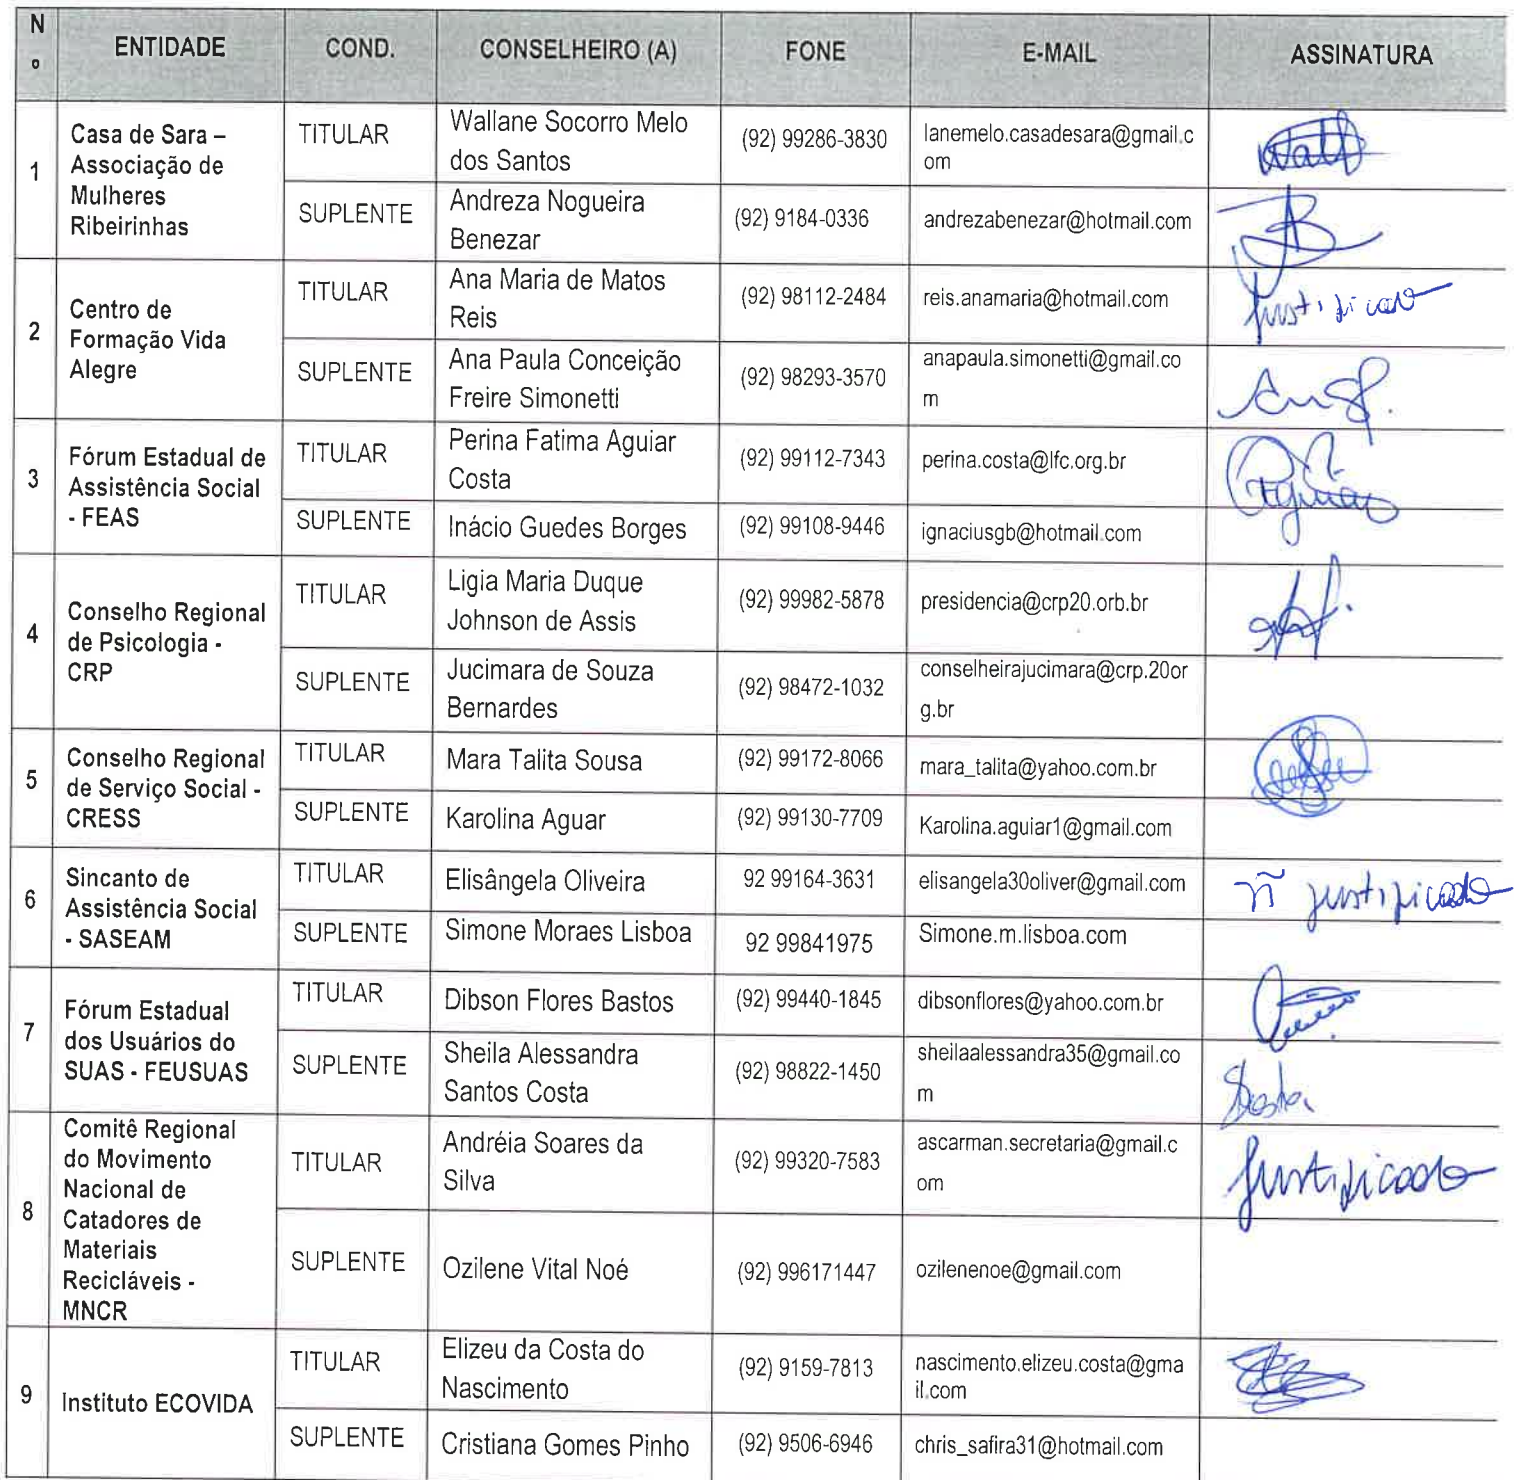 Nº ENTIDADE COND. CONSELHEIRO (A) FONE E-MAIL ASSINATURA
1
Casa de Sara –
Associação de
Mulheres
Ribeirinhas
TITULAR
Wallane Socorro Melo
dos Santos
(92) 99286-3830
lanemelo.casadesara@gmail.c
om
SUPLENTE
Andreza Nogueira
Benezar
(92) 9184-0336
andrezabenezar@hotmail.com
2
Centro de
Formação Vida
Alegre
TITULAR
Ana Maria de Matos
Reis
(92) 98112-2484
reis.anamaria@hotmail.com
Justificado
SUPLENTE
Ana Paula Conceição
Freire Simonetti
(92) 98293-3570
anapaula.simonetti@gmail.co
m
3
Fórum Estadual de
Assistência Social
- FEAS
TITULAR
Perina Fatima Aguiar
Costa
(92) 99112-7343
perina.costa@lfc.org.br
SUPLENTE
Inácio Guedes Borges
(92) 99108-9446
ignaciusgb@hotmail.com
4
Conselho Regional
de Psicologia -
CRP
TITULAR
Ligia Maria Duque
Johnson de Assis
(92) 99982-5878
presidencia@crp20.orb.br
SUPLENTE
Jucimara de Souza
Bernardes
(92) 98472-1032
conselheirajucimara@crp.20or
g.br
5
Conselho Regional
de Serviço Social -
CRESS
TITULAR
Mara Talita Sousa
(92) 99172-8066
mara_talita@yahoo.com.br
SUPLENTE
Karolina Aguar
(92) 99130-7709
Karolina.aguiar1@gmail.com
6
Sincanto de
Assistência Social
- SASEAM
TITULAR
Elisângela Oliveira
92 99164-3631
elisangela30oliver@gmail.com
ñ justificado
SUPLENTE
Simone Moraes Lisboa
92 99841975
Simone.m.lisboa.com
7
Fórum Estadual
dos Usuários do
SUAS - FEUSUAS
TITULAR
Dibson Flores Bastos
(92) 99440-1845
dibsonflores@yahoo.com.br
SUPLENTE
Sheila Alessandra
Santos Costa
(92) 98822-1450
sheilaalessandra35@gmail.co
m
8
Comitê Regional
do Movimento
Nacional de
Catadores de
Materiais
Recicláveis -
MNCR
TITULAR
Andréia Soares da
Silva
(92) 99320-7583
ascarman.secretaria@gmail.c
om
Justificado
SUPLENTE
Ozilene Vital Noé
(92) 996171447
ozilenenoe@gmail.com
9
Instituto ECOVIDA
TITULAR
Elizeu da Costa do
Nascimento
(92) 9159-7813
nascimento.elizeu.costa@gma
il.com
SUPLENTE
Cristiana Gomes Pinho
(92) 9506-6946
chris_safira31@hotmail.com